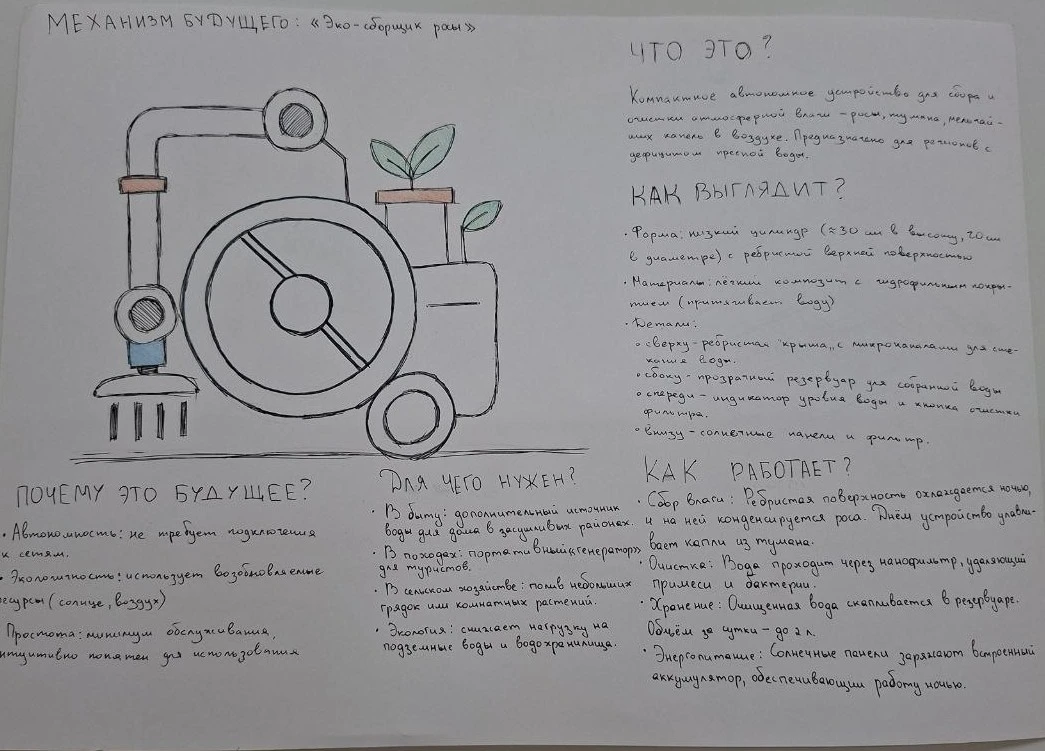 МЕХАНИЗМ БУДУЩЕГО: «Эко-сборщик росы»
ЧТО ЭТО?
Компактное автономное устройство для сбора и
очистки атмосферной влаги - росы, тумана, мельчай-
ших капель в воздухе. Предназначено для регионов с
дефицитом пресной воды.
КАК ВЫГЛЯДИТ?
• Форма: низкий цилиндр (≈30 см в высоту, 20 см
в диаметре) с ребристой верхней поверхностью
• Материалы: лёгкий композит с гидрофильным покры-
тием (притягивает воду)
• Детали:
° сверху - ребристая "крыша„ с микроканалами для сте-
кания воды.
° сбоку - прозрачный резервуар для собранной воды
° спереди - индикатор уровня воды и кнопка очистки
фильтра.
° внизу - солнечные панели и фильтр.
КАК РАБОТАЕТ?
• Сбор влаги: Ребристая поверхность охлаждается ночью,
и на ней конденсируется роса. Днём устройство улавли-
вает капли из тумана.
• Очистка: Вода проходит через нанофильтр, удаляющий
примеси и бактерии.
• Хранение: Очищенная вода скапливается в резервуаре.
Объём за сутки - до 2 л.
• Энергопитание: Солнечные панели заряжают встроенный
аккумулятор, обеспечивающий работу ночью.
ДЛЯ ЧЕГО НУЖЕН?
• В быту: дополнительный источник
воды для дома в засушливых районах.
• В походах: портативный «генератор»
для туристов.
• В сельском хозяйстве: полив небольших
грядок или комнатных растений.
• Экология: снижает нагрузку на
подземные воды и водохранилища.
ПОЧЕМУ ЭТО БУДУЩЕЕ?
• Автономность: не требует подключения
к сетям.
• Экологичность: использует возобновляемые
есурсы (солнце, воздух)
Простота: минимум обслуживания,
нтуитивно понятен для использования